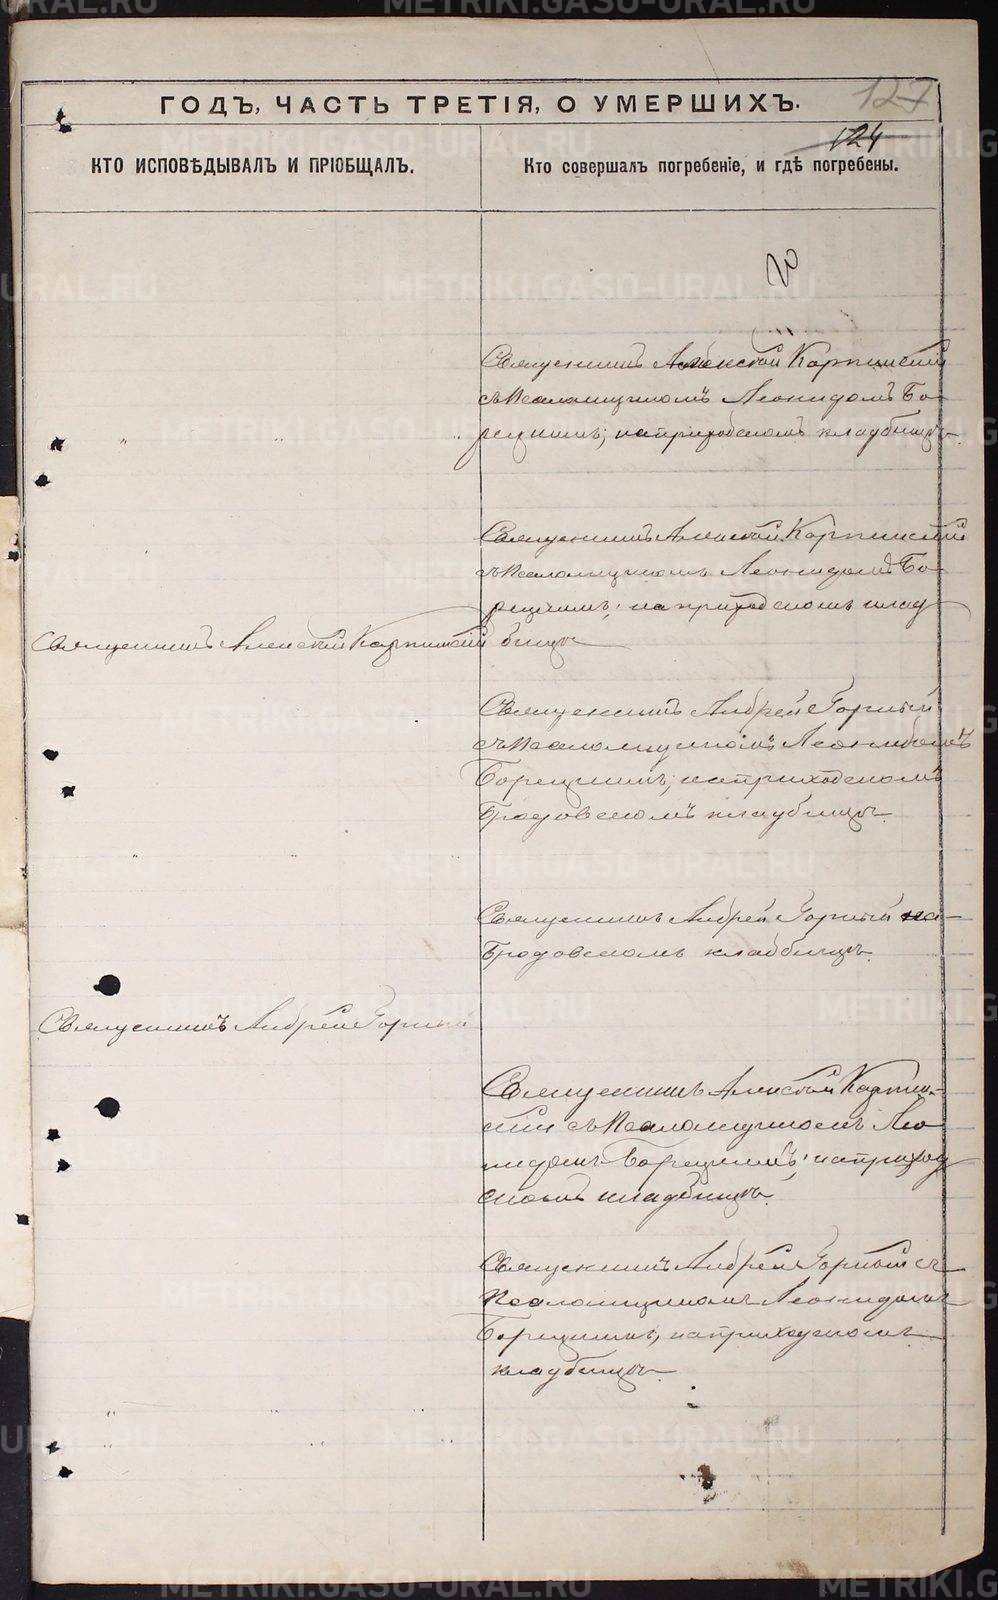 127
ГОДЪ, ЧАСТЬ ТРЕТІЯ, О УМЕРШИХЪ.
124
КТО ИСПОВѢДЫВАЛЪ И ПРІОБЩАЛЪ.
Кто совершалъ погребеніе, и гдѣ погребены.
Священникъ Алексѣй Карпинскій
съ Псаломщикомъ Леонидомъ Бо-
рецкимъ; на приходскомъ кладбищѣ.
Священникъ Алексѣй Карпинскій
съ Псаломщикомъ Леонидомъ Бо-
рецкимъ; на приходскомъ клад
бищѣ
Священникъ Алексѣй Карпинскій
Священникъ Андрей Горный
съ Псаломщикомъ Леонидомъ
Борецкимъ, на приходскомъ
Бродовскомъ кладбищѣ.
Священникъ Андрей Горный на
Бродовскомъ кладбищѣ.
Священникъ Андрей Горный
Священникъ Алексѣй Карпин-
скій съ Псаломщикомъ Лео
нидомъ Борецкимъ; на приход
скомъ кладбищѣ.
Священникъ Андрей Горный съ
Псаломщикомъ Леонидомъ
Борецкимъ, на приходскомъ
кладбищѣ.
METRIKI.GASO-URAL.RU